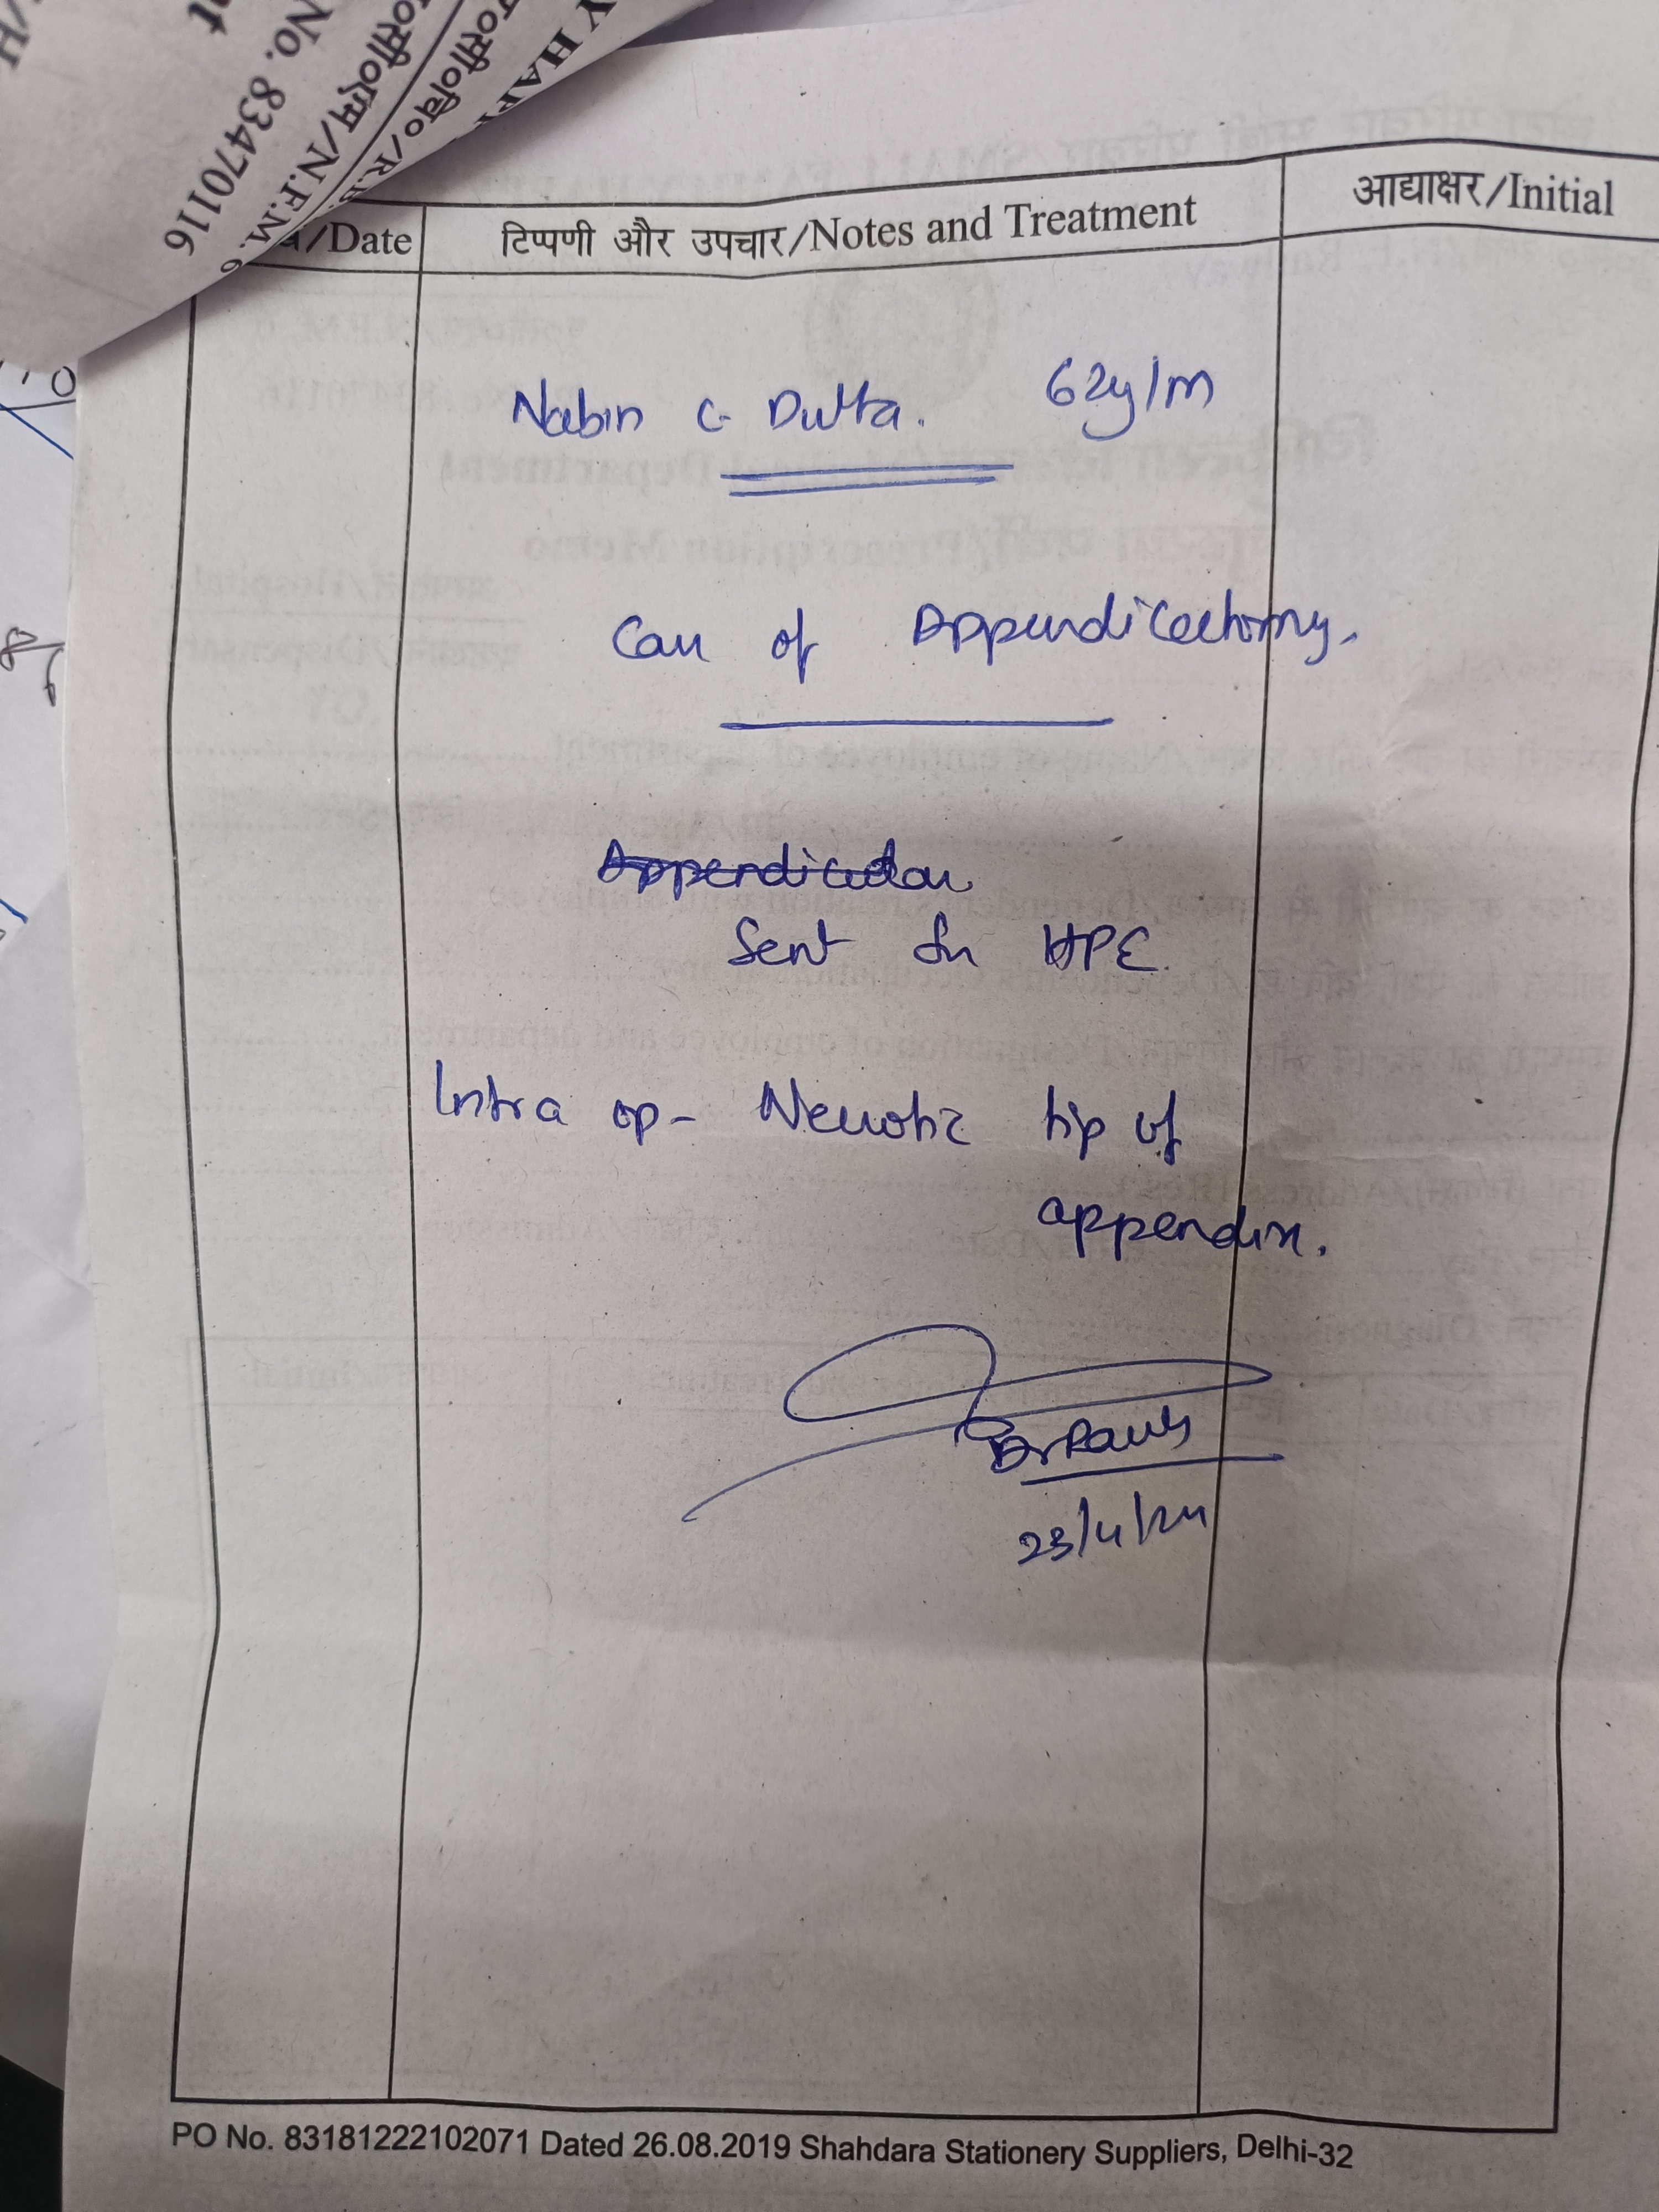 No. 83470116
एन०एफ०/N.F.M. 6
/Date
टिप्पणी और उपचार/Notes and Treatment
आद्याक्षर/Initial
Nabin C Dutta. 62y/m
Case of Appendicectomy.
Appendicular
Sent for HPE.
Intra op- Necrotic tip of
appendix.
23/4/24
PO No. 83181222102071 Dated 26.08.2019 Shahdara Stationery Suppliers, Delhi-32